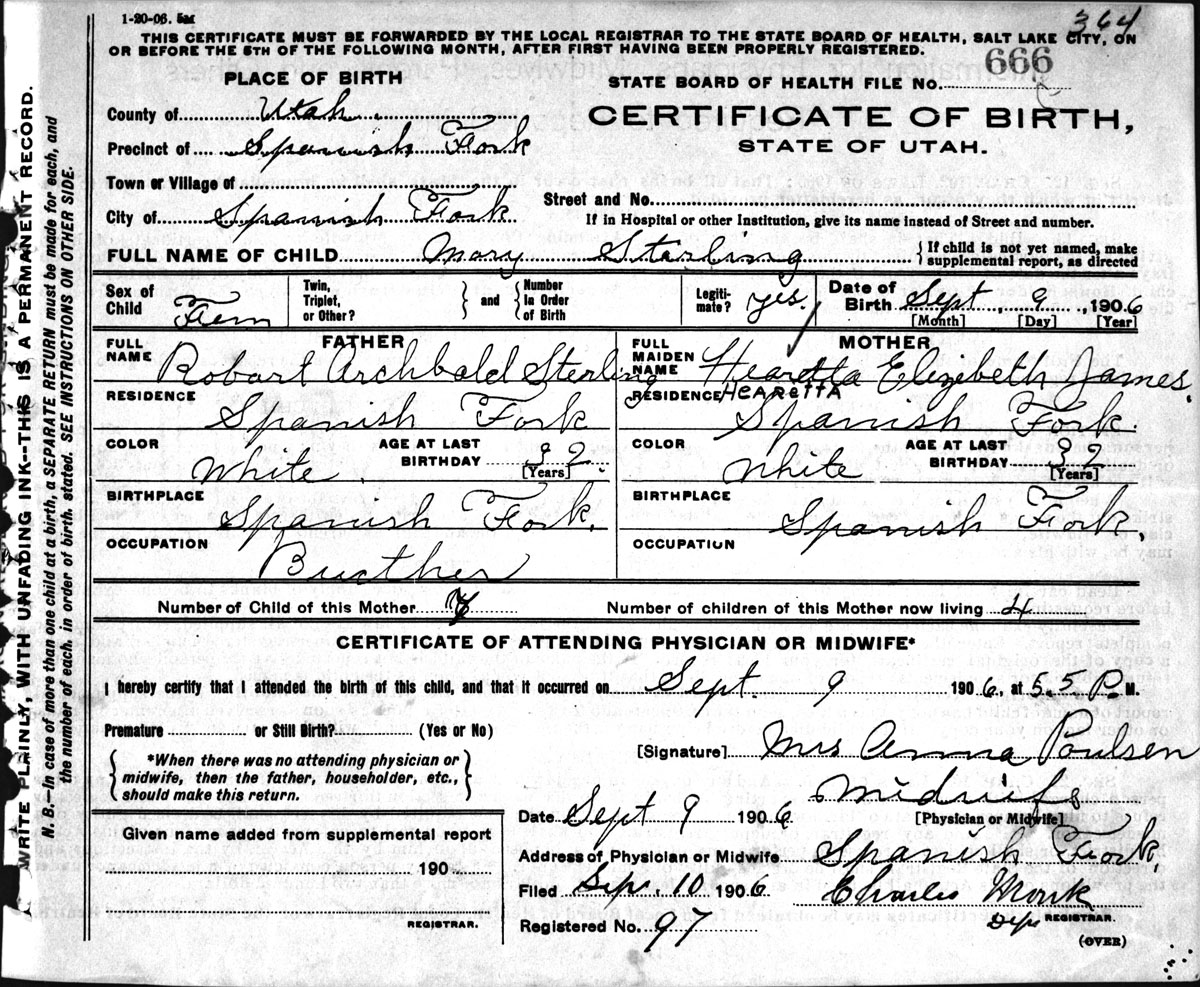 1-20-06. 5M
364
THIS CERTIFICATE MUST BE FORWARDED BY THE LOCAL REGISTRAR TO THE STATE BOARD OF HEALTH, SALT LAKE CITY, ON
OR BEFORE THE 5TH OF THE FOLLOWING MONTH, AFTER FIRST HAVING BEEN PROPERLY REGISTERED.
WRITE PLAINLY, WITH UNFADING INK--THIS IS A PERMANENT RECORD.
N. B.—In case of more than one child at a birth, a SEPARATE RETURN must be made for each, and
the number of each, in order of birth, stated. SEE INSTRUCTIONS ON OTHER SIDE.
PLACE OF BIRTH
STATE BOARD OF HEALTH FILE NO. 666
County of Utah
CERTIFICATE OF BIRTH,
STATE OF UTAH.
Precinct of Spanish Fork
Town or Village of
Street and No.
City of Spanish Fork
If in Hospital or other Institution, give its name instead of Street and number.
FULL NAME OF CHILD Mary Sterling
If child is not yet named, make
supplemental report, as directed
Sex of Child Fem
Twin, Triplet, or Other?
and
Number in Order of Birth
Legiti-mate? yes
Date of Birth Sept 9, 1906
[Month] [Day] [Year]
FATHER
FULL NAME Robart Archbald Sterling
RESIDENCE Spanish Fork
COLOR White
AGE AT LAST BIRTHDAY 32
[Years]
BIRTHPLACE Spanish Fork.
OCCUPATION Bucther
MOTHER
FULL MAIDEN NAME Hearetta Elizibeth James.
HEARETTA
RESIDENCE Spanish Fork.
COLOR White
AGE AT LAST BIRTHDAY 32
[Years]
BIRTHPLACE Spanish Fork.
OCCUPATION
Number of Child of this Mother
Number of children of this Mother now living 4
CERTIFICATE OF ATTENDING PHYSICIAN OR MIDWIFE*
I hereby certify that I attended the birth of this child, and that it occurred on Sept. 9 1906, at 5.5 P. M.
Premature or Still Birth? (Yes or No)
[Signature] Mrs Anna Poulsen
*When there was no attending physician or
midwife, then the father, householder, etc.,
should make this return.
Midwife
[Physician or Midwife]
Date Sept 9 1906
Given name added from supplemental report
190
REGISTRAR.
Address of Physician or Midwife Spanish Fork,
Filed Sep. 10 1906
Charles Monk
Dep REGISTRAR.
Registered No. 97
(OVER)